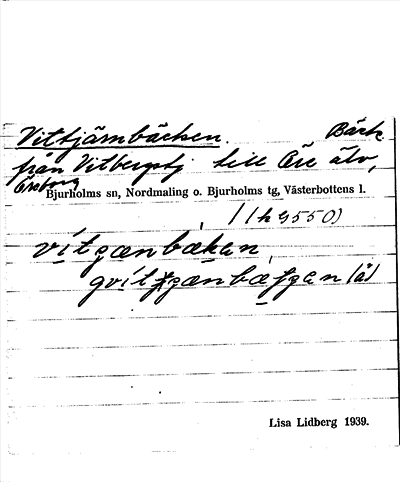 Vittjärnbäcken. Bäck
från Vitbergstj till Öre älv,
Öreborg
Bjurholms sn, Nordmaling o. Bjurholms tg, Västerbottens l.
(1h 9550)
vitgænbækan
(ä)
Lisa Lidberg 1939.